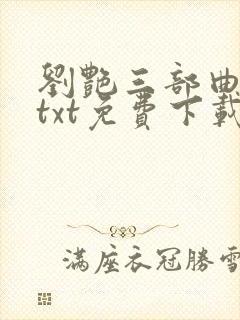 劉艷三部曲
txt免費下載
滿座衣冠勝雪